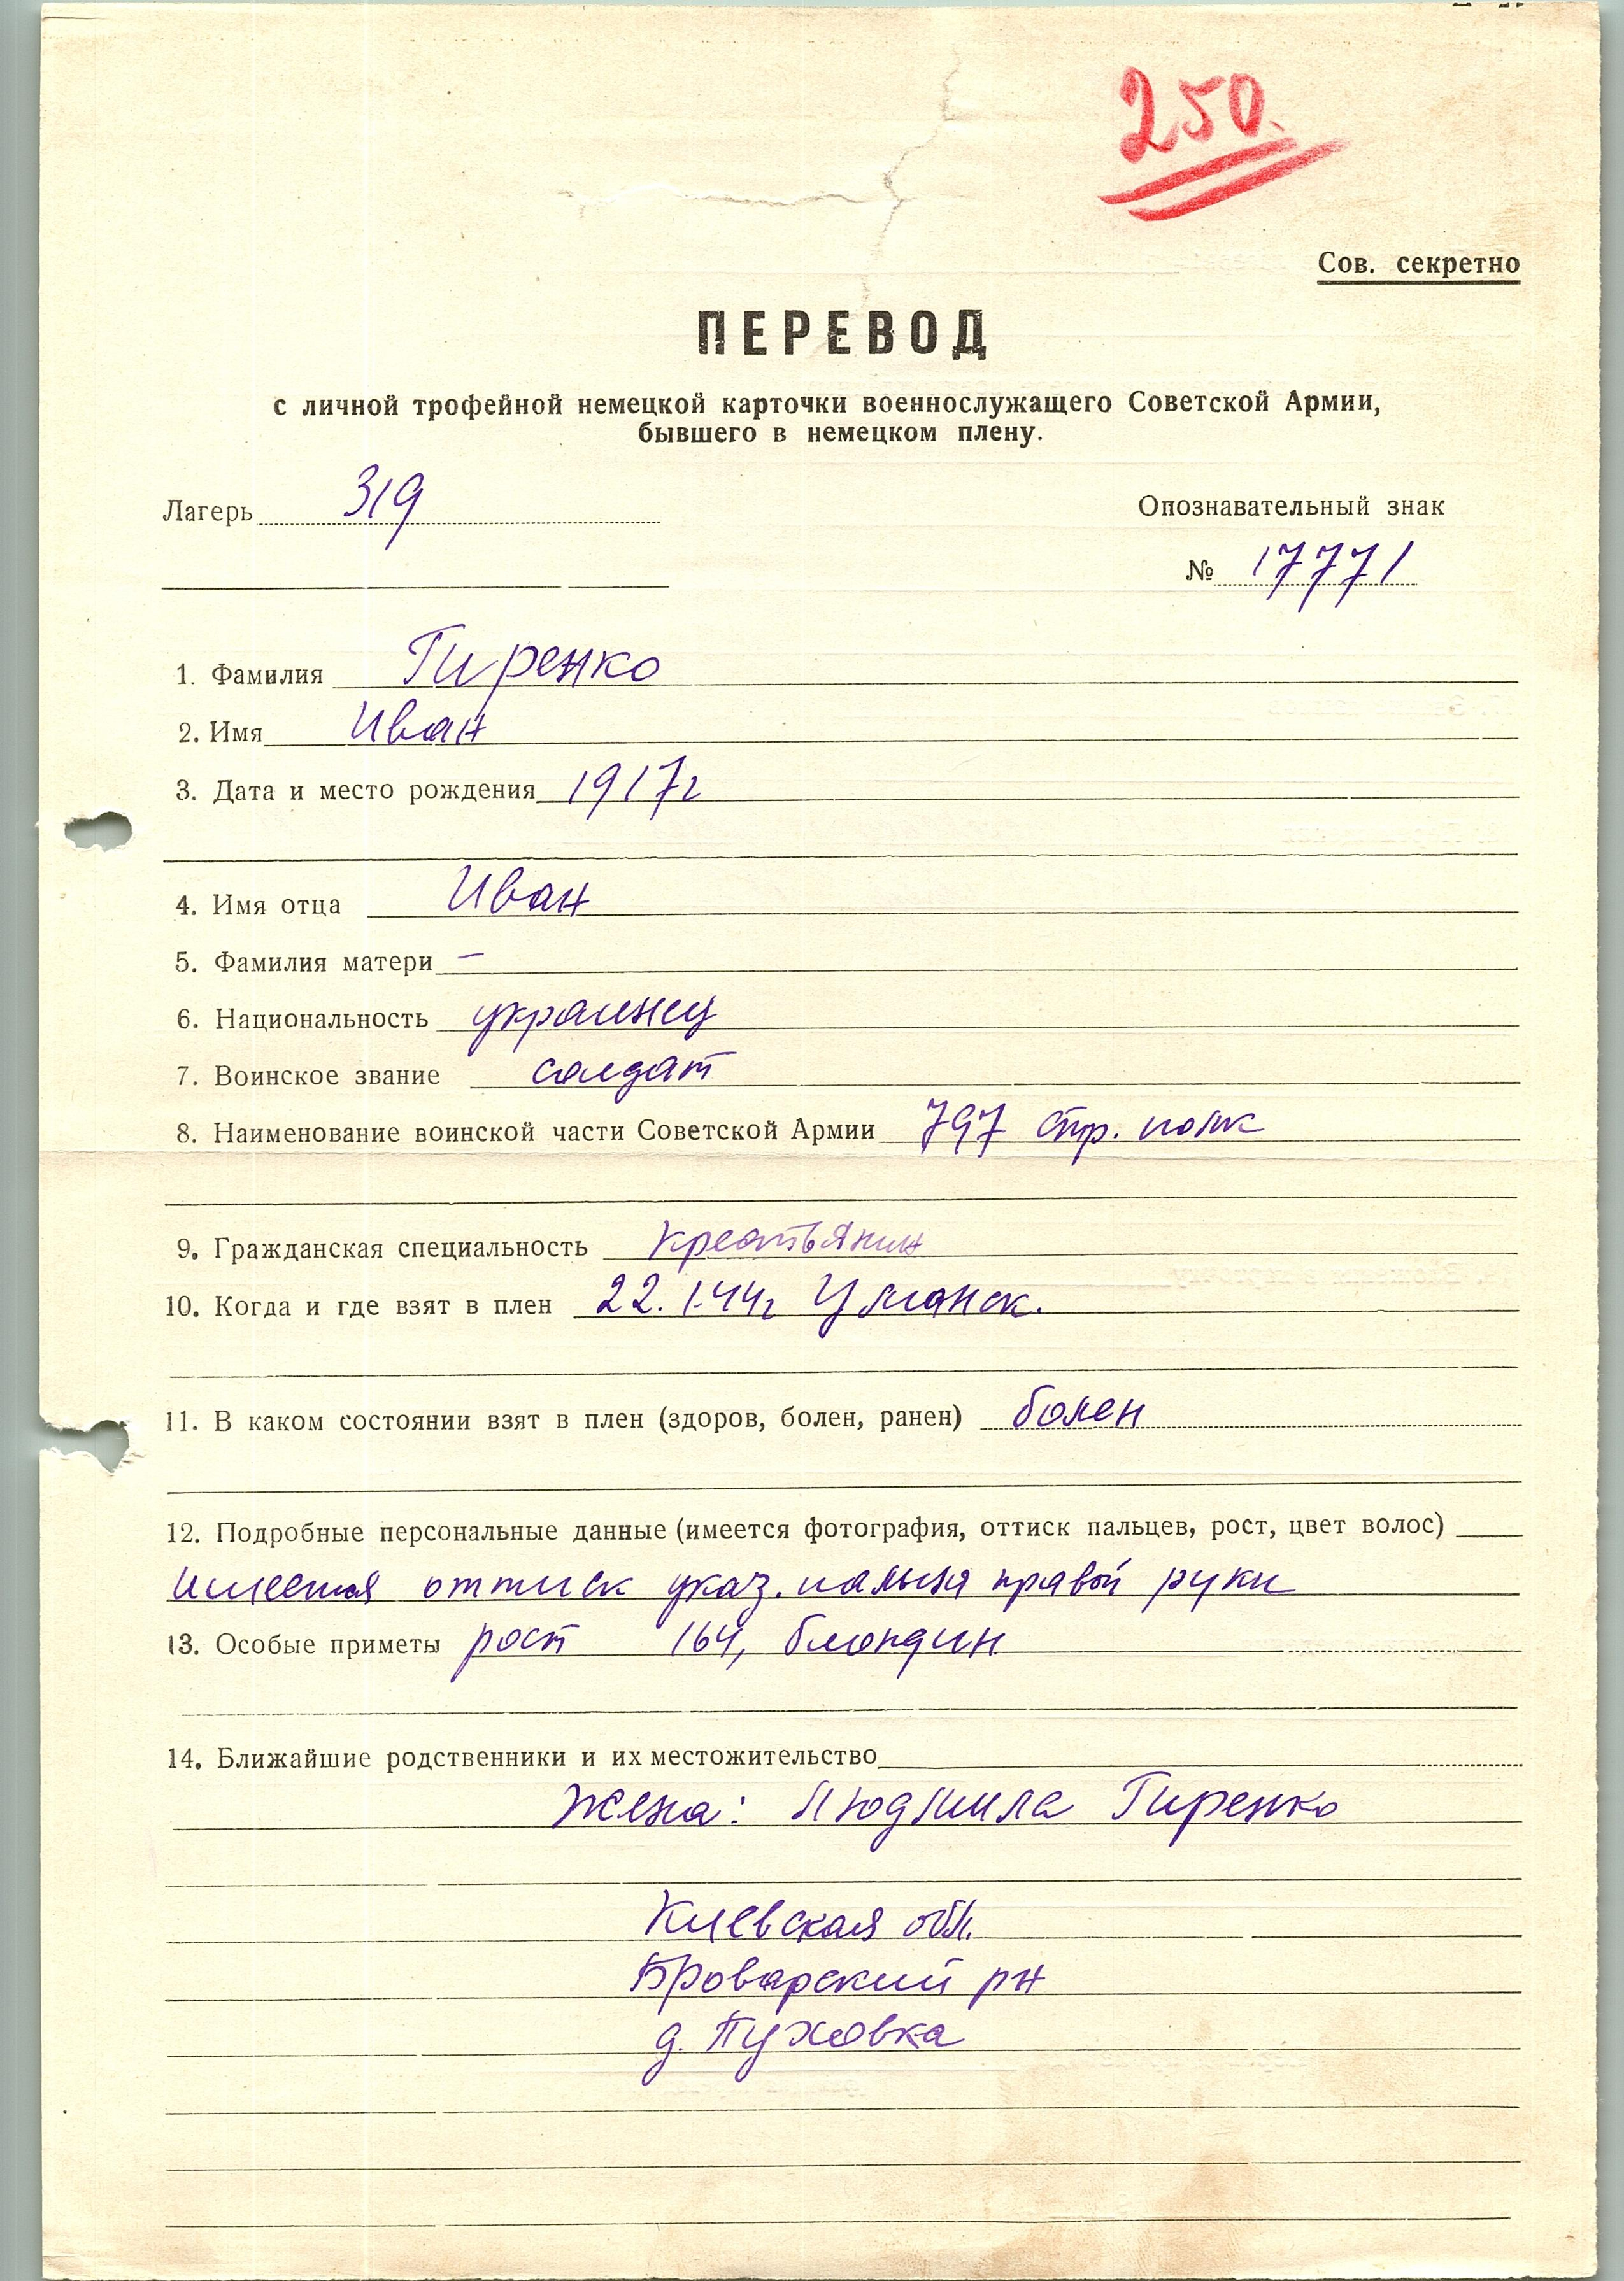 250.
Сов. секретно
ПЕРЕВОД
с личной трофейной немецкой карточки военнослужащего Советской Армии,
бывшего в немецком плену.
Лагерь 319
Опознавательный знак
№ 17771
1. Фамилия Гиренко
2. Имя Иван
3. Дата и место рождения 1917г
4. Имя отца Иван
5. Фамилия матери —
6. Национальность украинец
7. Воинское звание солдат
8. Наименование воинской части Советской Армии 797 стр. полк
9. Гражданская специальность крестьянин
10. Когда и где взят в плен 22.1.44г Уманск.
11. В каком состоянии взят в плен (здоров, болен, ранен) болен
12. Подробные персональные данные (имеется фотография, оттиск пальцев, рост, цвет волос)
имеется оттиск указ. пальца правой руки
13. Особые приметы рост 164, блондин
14. Ближайшие родственники и их местожительство
Жена: Людмила Гиренко
Киевская обл.
Броварский рн
д. Пуховка